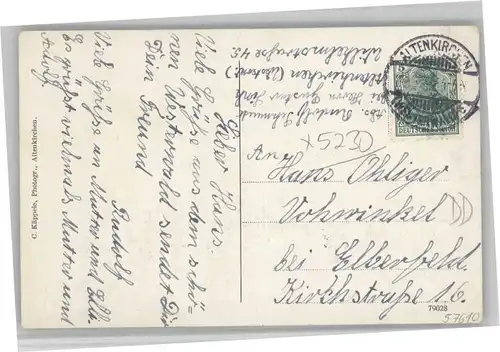 Lieber Hans.
Viele Grüße aus dem schö-
nen Westerwald sendet Dir
Dein Freund
Rudolf
Viele Grüße an Mutter und Ella.
Es grüßt vielmals Mutter und
Adolf.
C. Käppele, Photogr., Altenkirchen.
Abs. Rudolf Schmidt
bei Herrn Gustav
Altenkirchen (Westerw.)
Wilhelmstraße 45
ALTENKIRCHEN
x5230
An
Hans Ohliger
Vohwinkel
bei Elberfeld.
Kirchstraße 16.
79028
57610